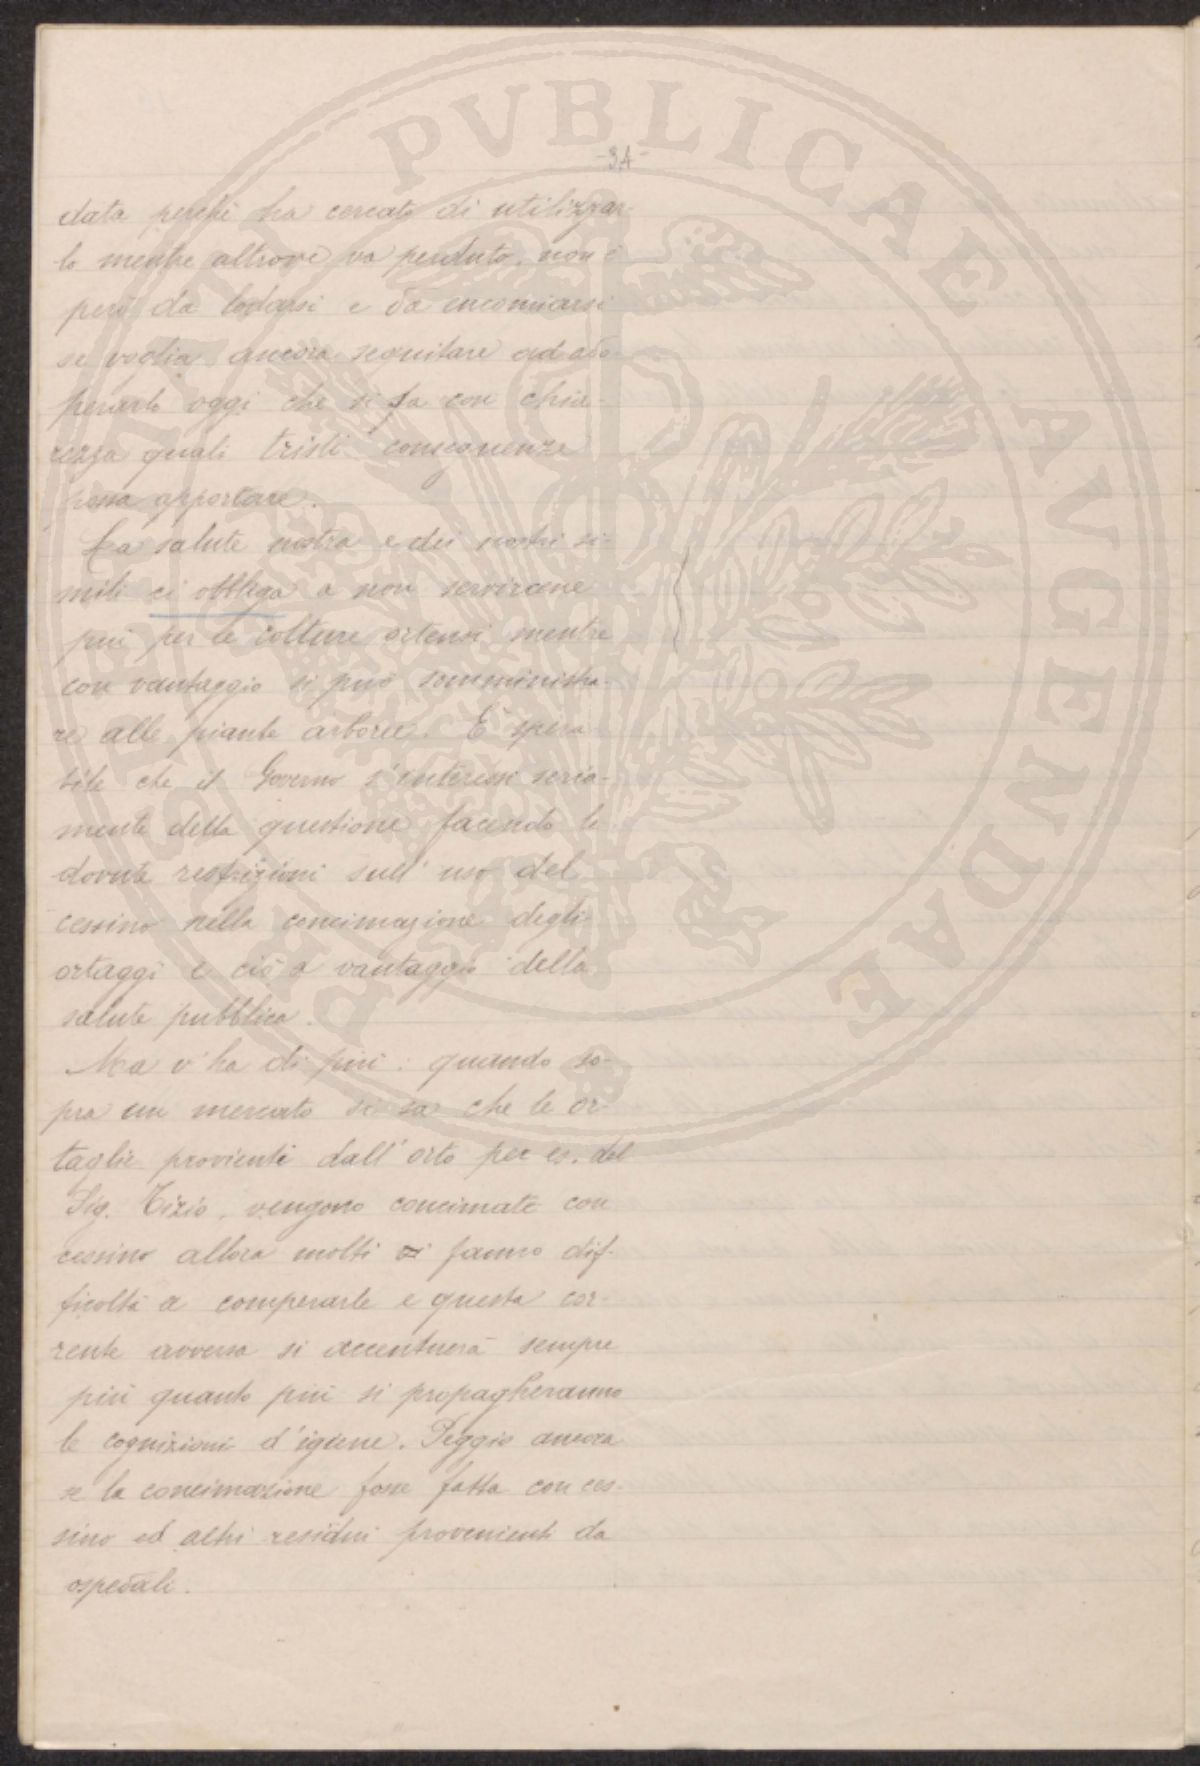 -34-
data perchè ha cercato di utilizzar-
lo mentre altrove va perduto, non è
però da lodarsi e da encomiarsi
se voglia ancora seguitare ad ado-
perarlo oggi che si sa con chia-
rezza quali tristi conseguenze
possa apportare.
La salute nostra e dei nostri si-
mili ci obbliga a non servircene
più per le colture ortensi mentre
con vantaggio si può somministra-
re alle piante arboree. È spera-
bile che il Governo s'interessi seria-
mente della questione facendo le
dovute restrizioni sull'uso del
cessino nella concimazione degli
ortaggi e ciò a vantaggio della
salute pubblica.
Ma v'ha di più: quando so-
pra un mercato si sa che le or-
taglie provienti dall'orto per es. del
Sig. Tizio, vengono concimate con
cessino allora molti fanno dif-
ficoltà a comperarle e questa cor-
rente avversa si accentuerà sempre
più quanto più si propagheranno
le cognizioni d'igiene. Peggio ancora
se la concimazione fosse fatta con ces-
sino ed altri residui provenienti da
ospedali.
PUBLICAE AVGENDAE